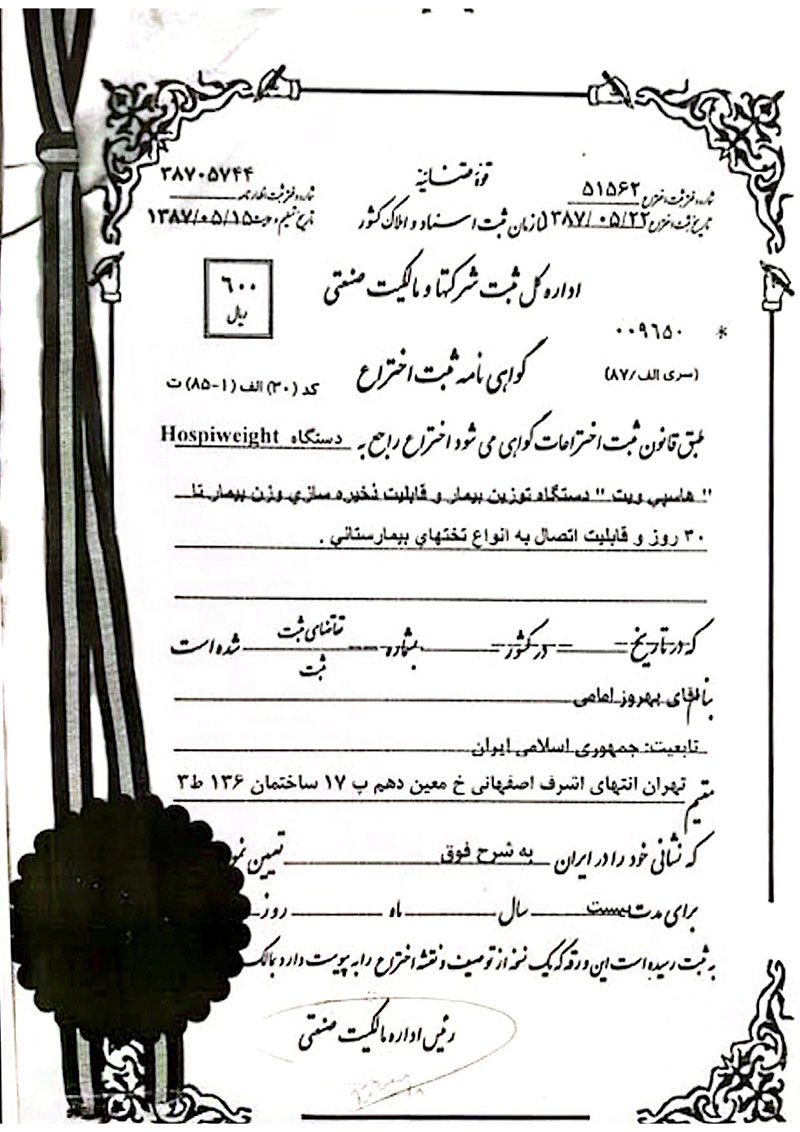 قوهٔ قضائیه
شماره دفتر ثبت اختراع ۵۱۵۶۲
۳۸۷۰۵۷۴۴
شماره دفتر ثبت اظهارنامه
تاریخ ثبت اختراع ۱۳۸۷/۰۵/۲۲
سازمان ثبت اسناد و املاک کشور
تاریخ تسلیم ۱۳۸۷/۰۵/۱۵
اداره کل ثبت شرکتها و مالکیت صنعتی
۶۰۰
ریال
* ۰۰۹۶۵۰
(سری الف/۸۷)
گواهی نامه ثبت اختراع
کد (۳۰) الف (۱-۸۵) ت
طبق قانون ثبت اختراعات گواهی می شود اختراع راجع به دستگاه Hospiweight
" هاسپي ويت " دستگاه توزين بيمار و قابليت ذخيره سازي وزن بيمار تا
۳۰ روز و قابليت اتصال به انواع تختهاي بيمارستاني .
که در تاریخ ــ در کشور ــ بشماره ــ تقاضای ثبت شده است
ثبت
بنام آقای بهروز امامی
تابعیت: جمهوری اسلامی ایران
مقیم تهران انتهای اشرف اصفهانی خ معین دهم پ ۱۷ ساختمان ۱۳۶ ط۳
که نشانی خود را در ایران به شرح فوق تعیین
برای مدت بیست سال ماه روز
به ثبت رسیده است این ورقه که یک نسخه از توصیف و نقشه اختراع را به پیوست دارد
رئیس اداره مالکیت صنعتی